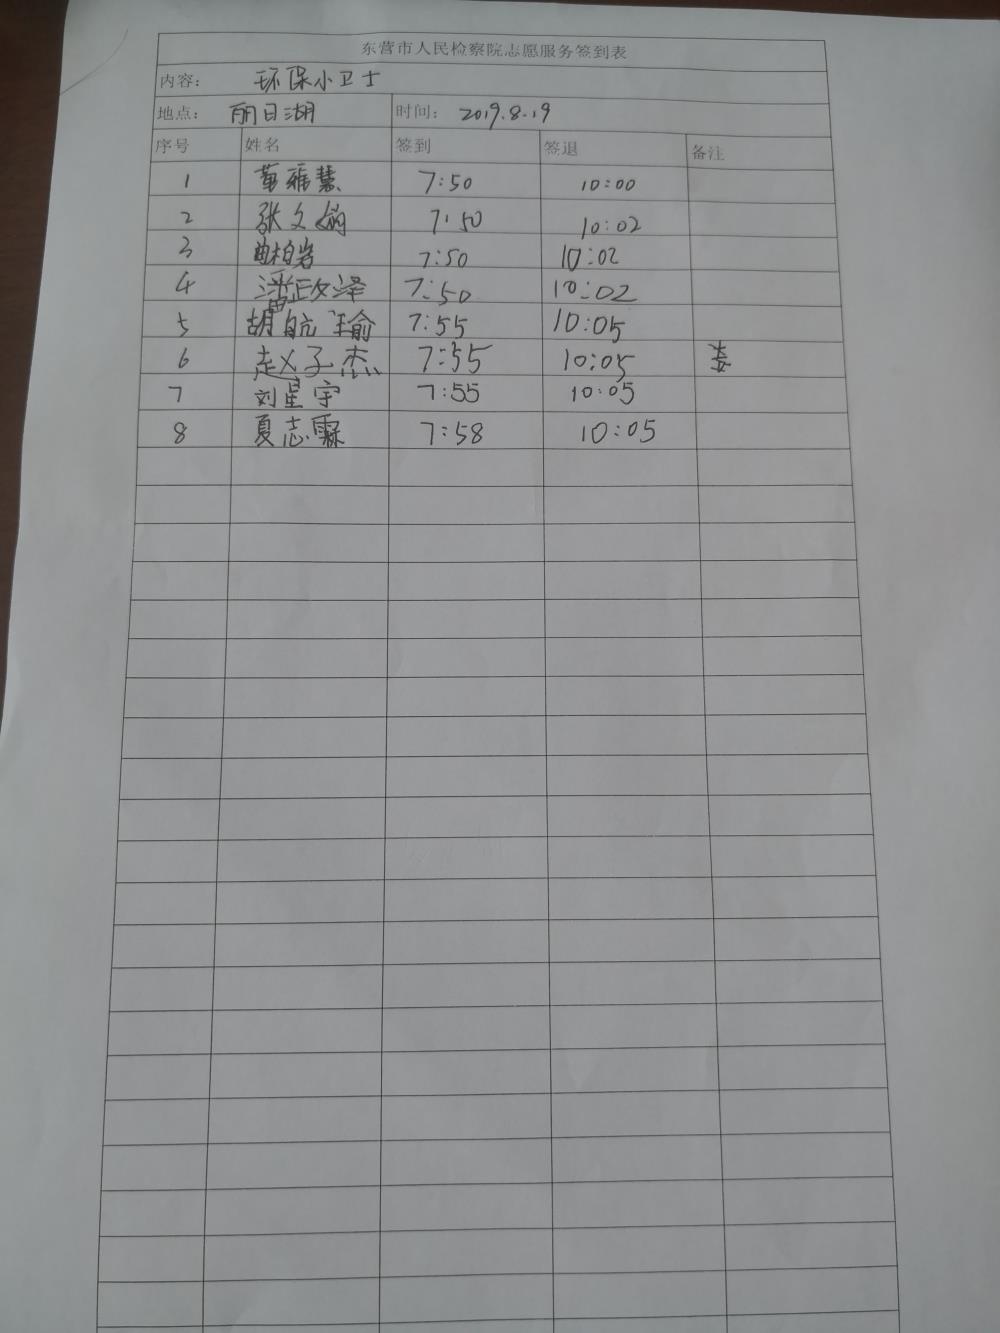 东营市人民检察院志愿服务签到表
内容： 环保小卫士
地点： 丽日湖 时间： 2019.8.19
序号 姓名 签到 签退 备注
1 雅慧 7:50 10:00
2 张文娟 7:50 10:02
3 曲柏岩 7:50 10:02
4 潘政泽 7:50 10:02
5 胡航瑜 7:55 10:05
6 赵子杰 7:55 10:05
7 刘星宇 7:55 10:05
8 夏志霖 7:58 10:05